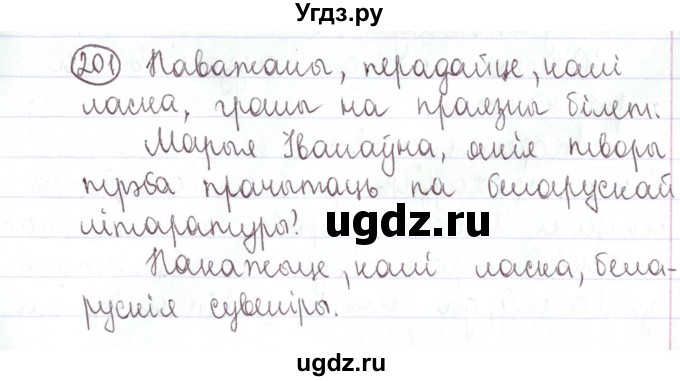 Угdз.ру
201 Паважаны, перадайце, калі
ласка, грошы на праязны білет.
Марыя Іванаўна, якія творы
трэба прачытаць па беларускай
літаратуры?
ugdz.ru
Пакажыце, калі ласка, бела-
рускія сувеніры.
ugdz.ru